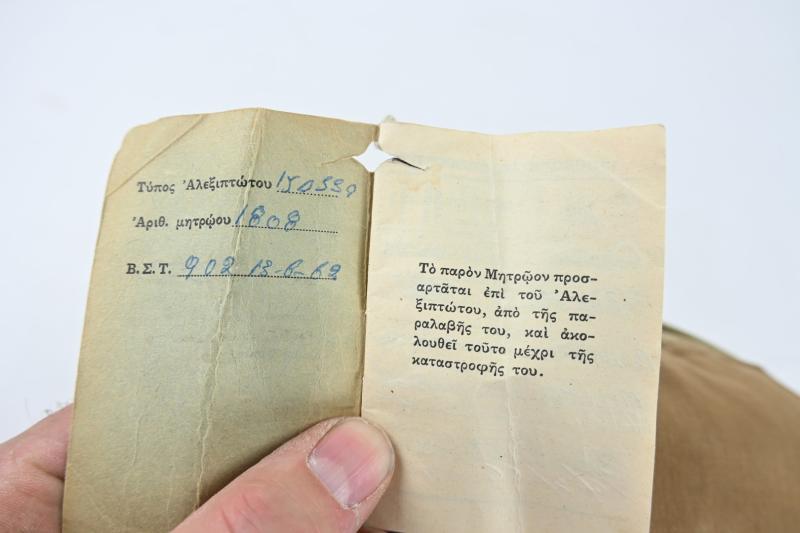 Τύπος Ἀλεξιπτώτου
Ἀριθ. μητρῴου 1808
Β.Σ.Τ. 902 13-6-62
Τὸ παρὸν Μητρῷον προσ-
αρτᾶται ἐπὶ τοῦ Ἀλε-
ξιπτώτου, ἀπὸ τῆς πα-
ραλαβῆς του, καὶ ἀκο-
λουθεῖ τοῦτο μέχρι τῆς
καταστροφῆς του.